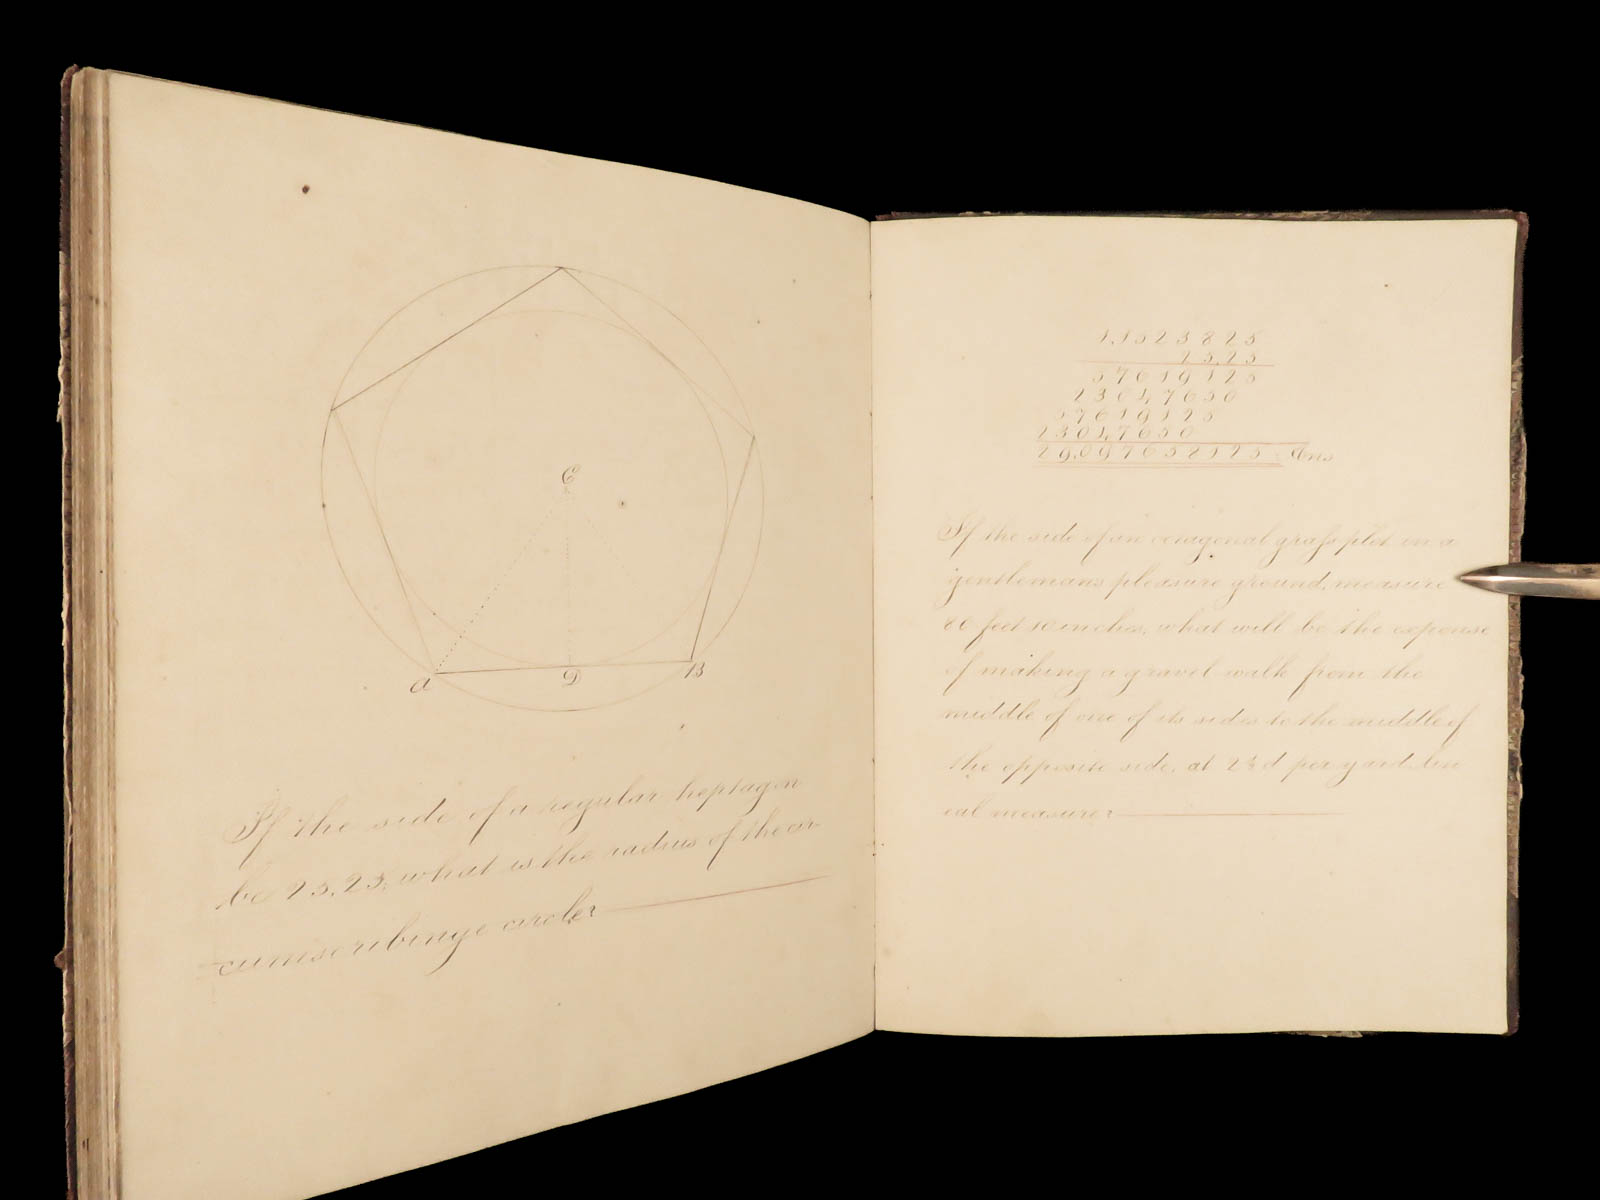 E
A D B
If the side of a regular heptagon
be 25,25, what is the radius of the cir-
cumscribinge circle?
1,1523825
25,25
57619125
2304,7650
57619125
2301,7650
29,097658125 Ans
If the side of an octagonal grass plot in a
gentlemans pleasure ground, measure
80 feet 10 inches, what will be the expense
of making a gravel walk from the
middle of one of its sides to the middle of
the opposite side, at 2½d per yard lin
eal measure?